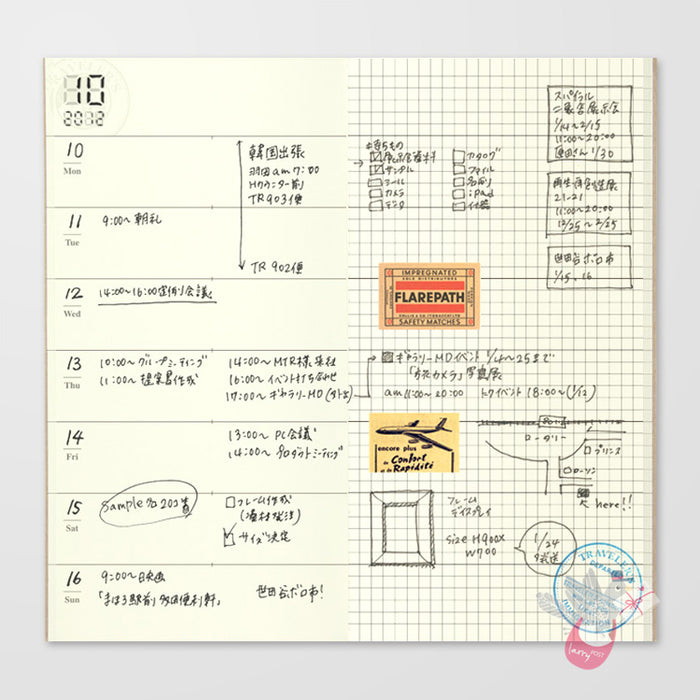 10
2012
10
Mon
韓国出張
羽田am7:00
Hカウンター前
TR903便
TR 902便
11
Tue
9:00〜 朝礼
12
Wed
14:00〜16:00定例り会議
13
Thu
10:00〜 グループミーティング
11:00〜 提案書作成
14:00〜 MTR様来社
16:00〜 イベント打ち合わせ
17:00〜 ギャラリーMD
14
Fri
13:00〜 PC会議
14:00〜 プロダクトミーティング
15
Sat
Sample
フレーム作成
サイズ決定
16
Sun
9:00〜 映画
「まほろ駅前多田便利軒」
世田谷ボロ市!
持ちもの
展示会資料
サンプル
ツール
カメラ
カタログ
ファイル
名刺
iPad
什器
スパイラル
二最合展示会
1/14〜2/15
11:00〜20:00
原田さん 1/30
21-21
11:00〜20:00
12/25〜 2/25
世田谷ボロ市
1/15、16
IMPREGNATED
SOLE DISTRIBUTORS
FLAREPATH
SAFETY MATCHES
ギャラリーMDイベント 1/14〜25まで
「お花カメラ」写真展
am11:00〜20:00 トークイベント 18:00〜(1/12)
encore plus
de Confort
et de Rapidité
ロータリー
プリンス
ローソン
here!!
フレーム
ディスプレイ
size H900×
W700
1/24
発送
TRAVELER'S
DEPARTED
IMMIGRATION
larry POST